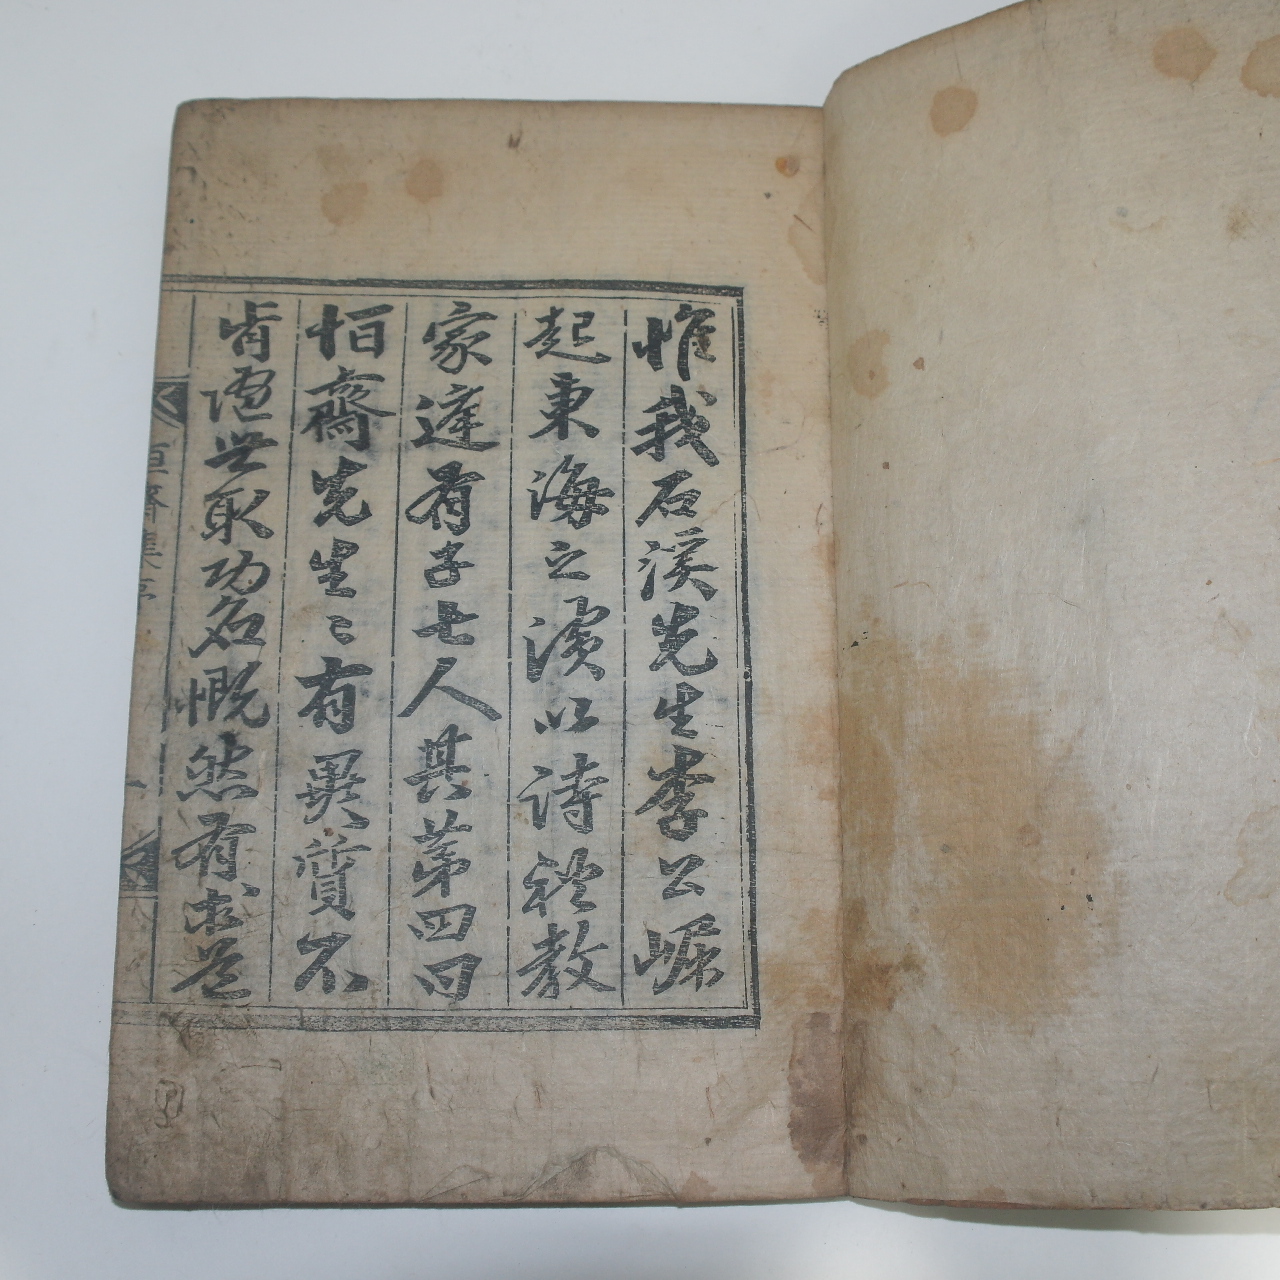 惟我石溪先生李公崛
起東海之濱以詩禮教
家達有子七人其第四曰
恒齋先生〻有異質不
肯隨世取功名慨然有求道
恒齋集序
一